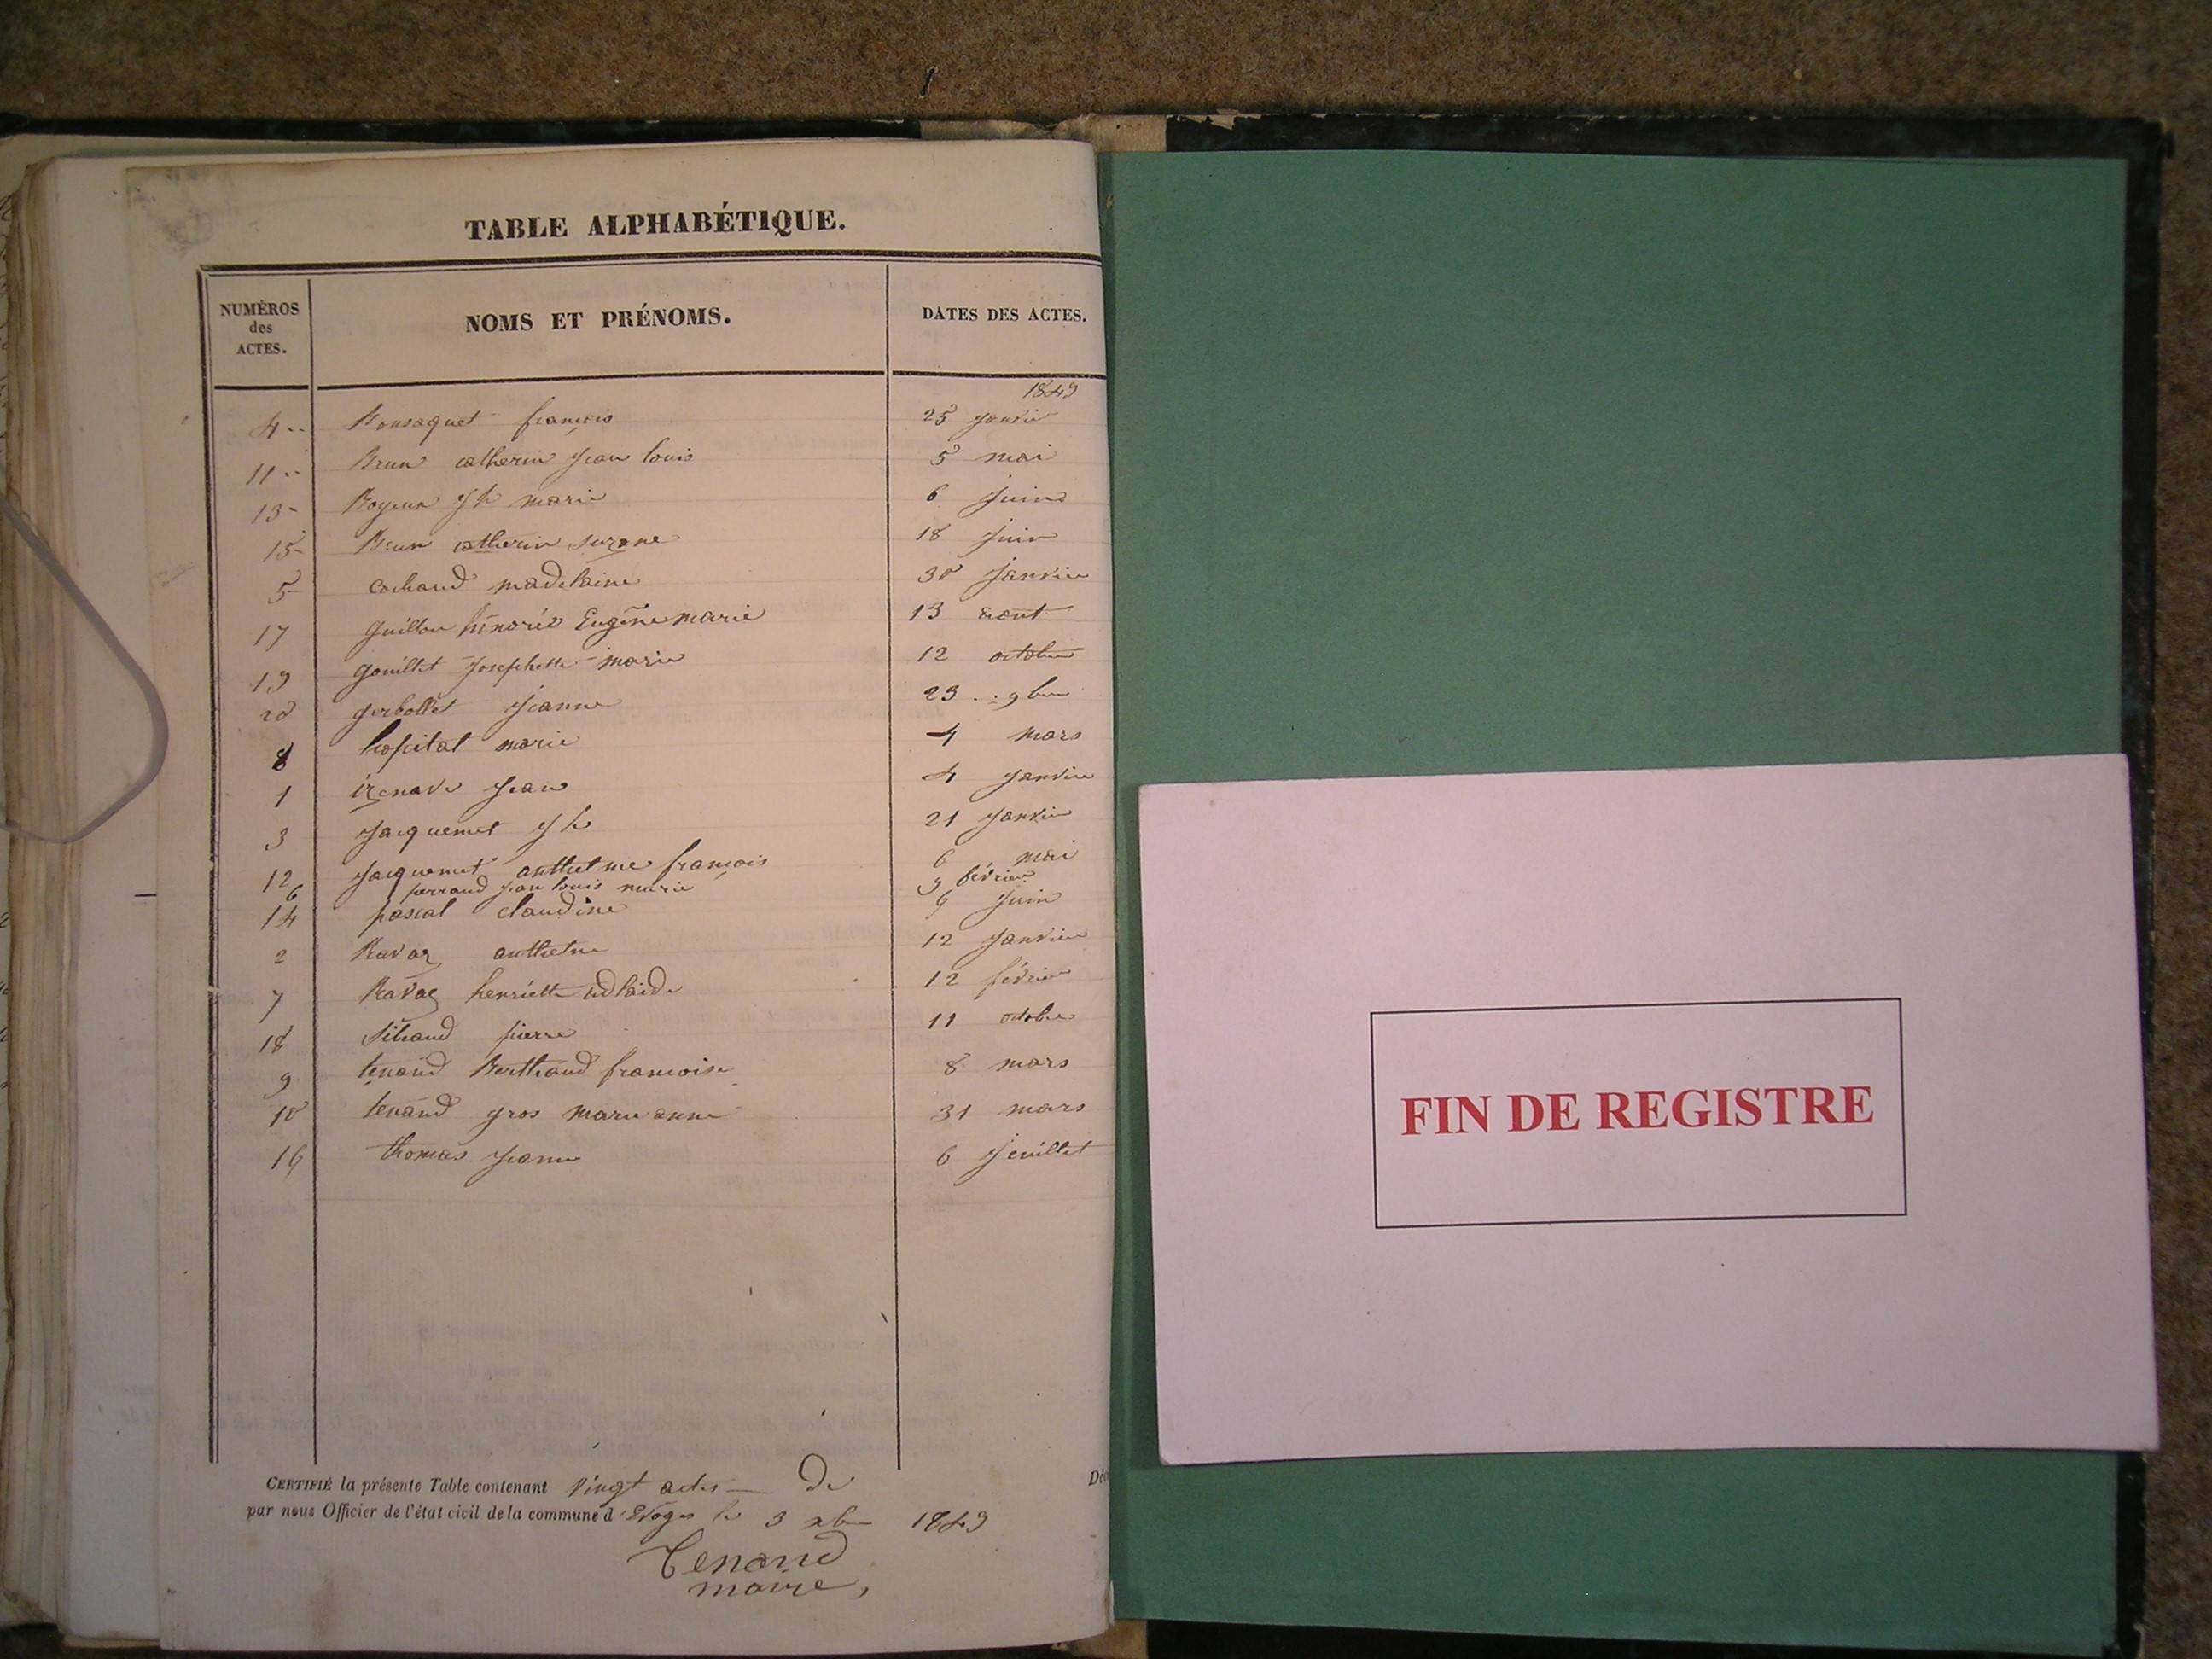 TABLE ALPHABÉTIQUE.
NUMÉROS des ACTES.
NOMS ET PRÉNOMS.
DATES DES ACTES.
1849
4 Bonsaquet françois 25 janvier
11 Brun catherin jean louis 5 mai
13 Boyeux jh marie 6 juin
15 Brun catherin suzane 18 juin
5 cochard madelaine 30 janvier
17 guillou Eugène marie 13 aout
19 gouillet josephette marie 12 octobre
20 gerbollet jeanne 23 9bre
8 hopital marie 4 mars
1 izenave jean 4 janvier
3 jacquemet jh 21 janvier
12 jacquemet anthetme françois 6 mai
6 perraud jean louis marie 9 février
14 pascal claudine 9 juin
2 Ravaz anthelme 12 janvier
7 Ravaz henriette adlaide 12 février
18 Sibaud pierre 11 octobre
9 tenand Berthaud francoise 8 mars
10 tenand gros marie anne 31 mars
16 thomas jeanne 6 jeuillet
CERTIFIÉ la présente Table contenant vingt actes De
par nous Officier de l'état civil de la commune d'Evoges le 3 xbre 1849
Tenand
maire,
FIN DE REGISTRE